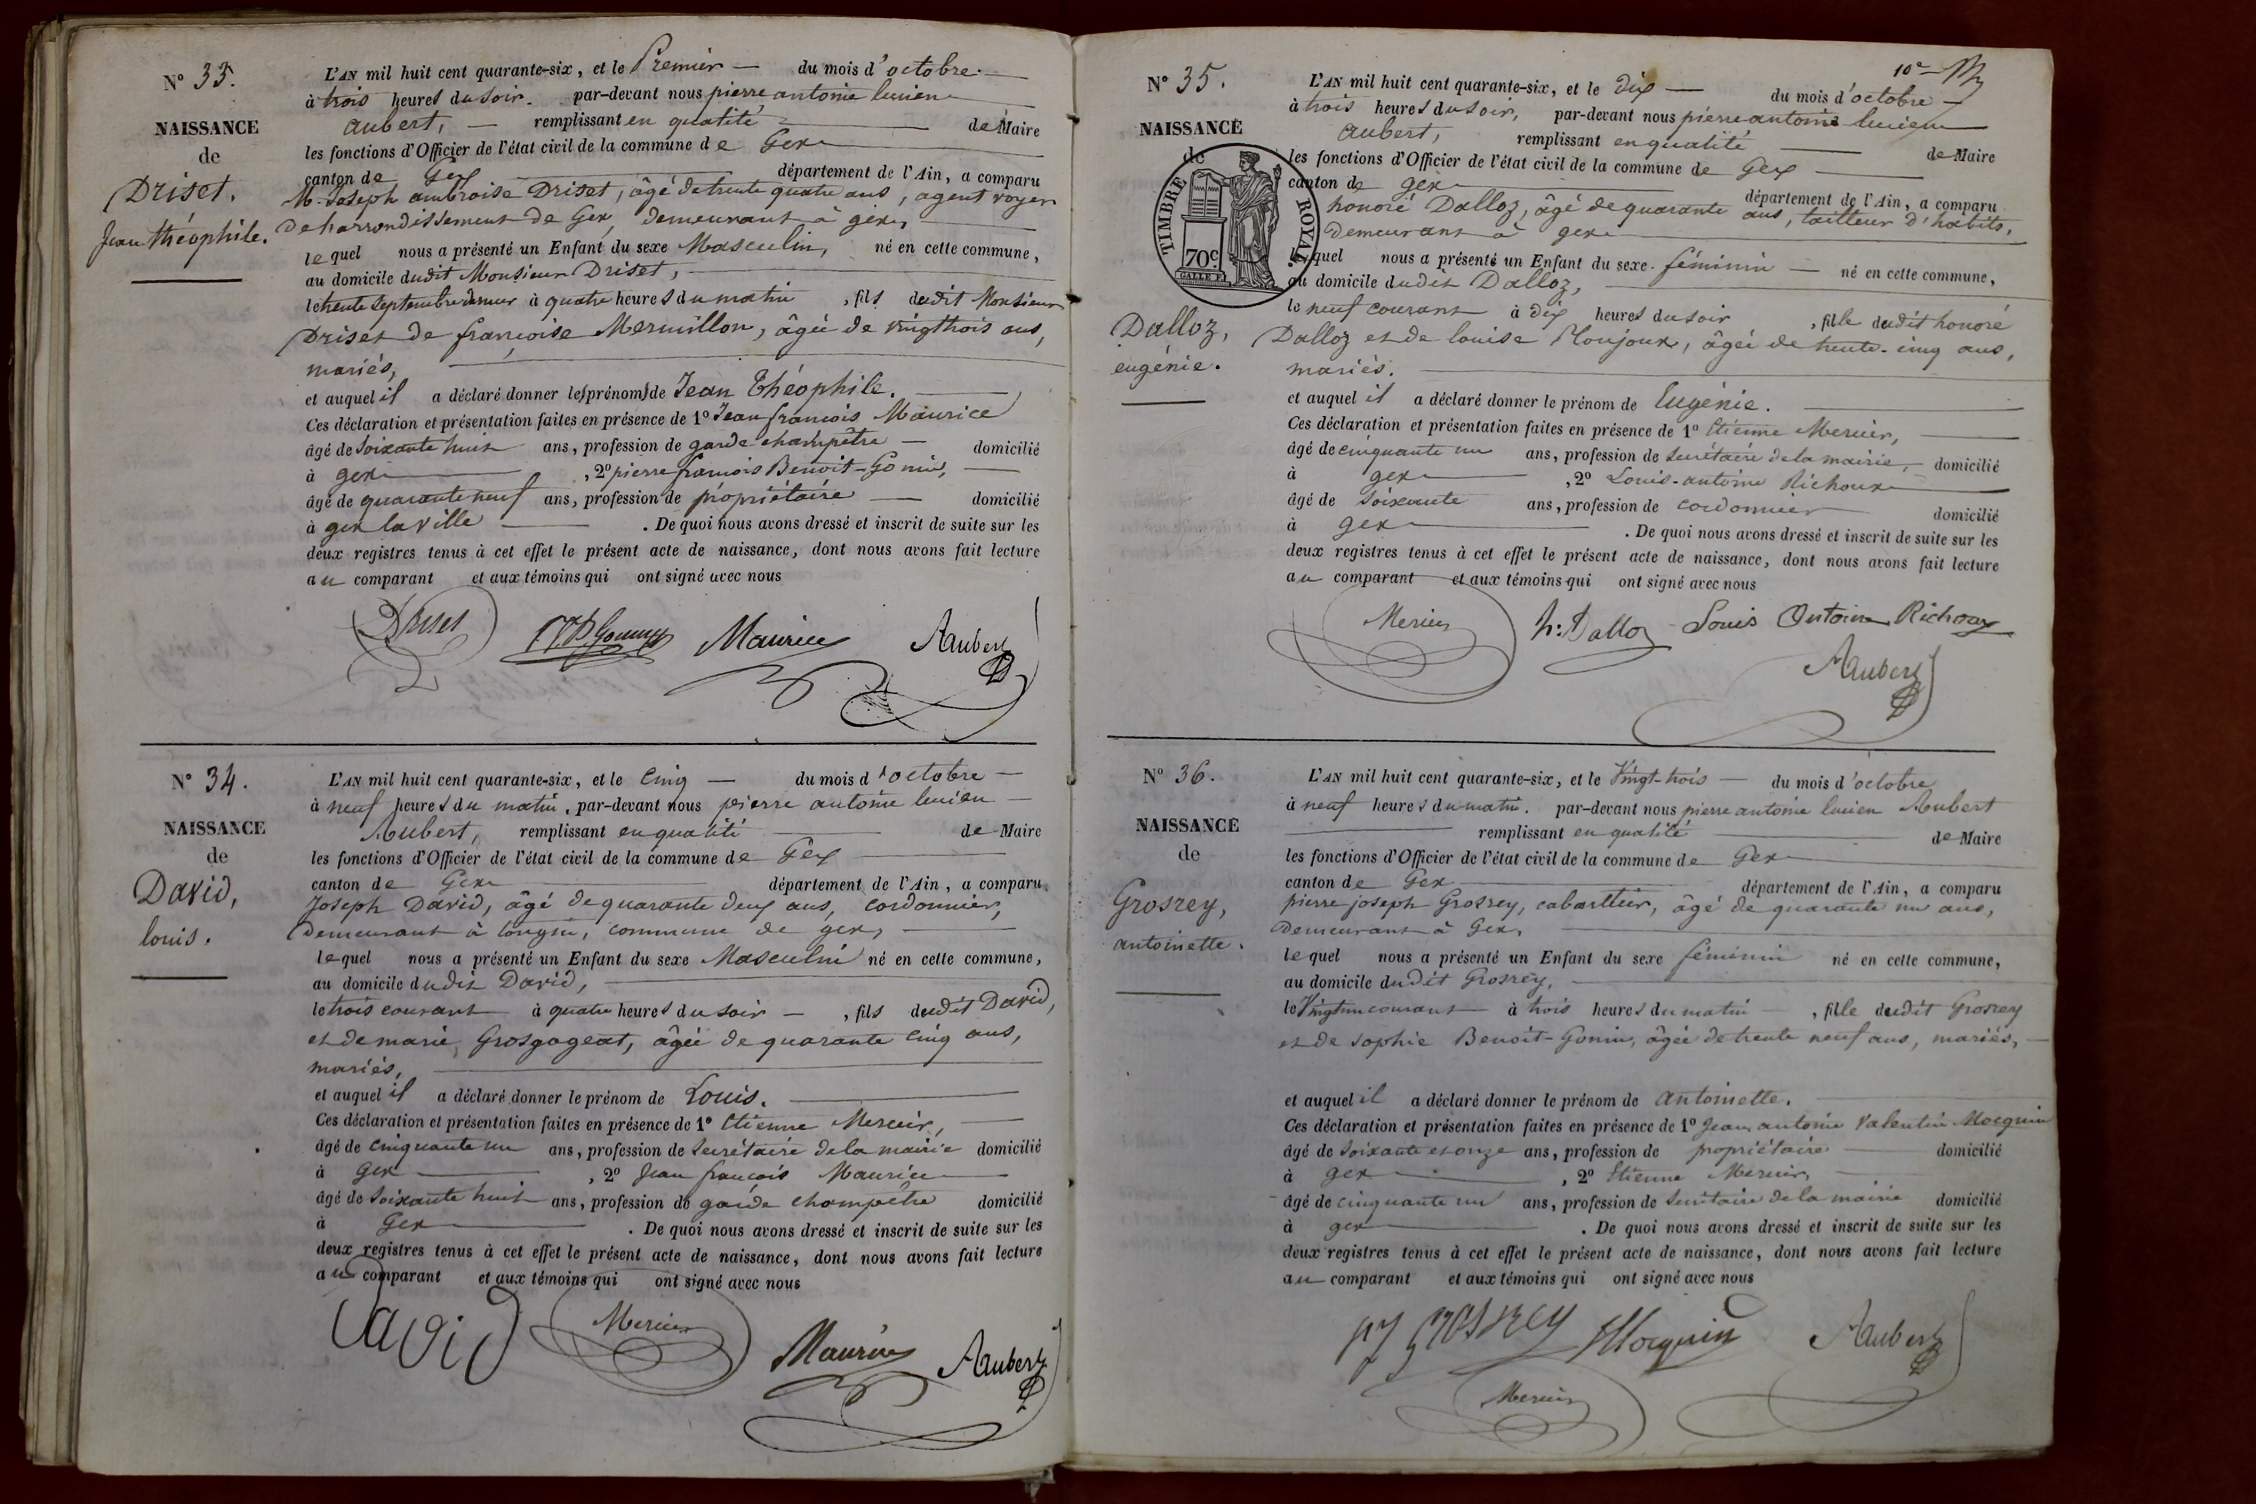 N° 33.
NAISSANCE
de
Driset,
Jean théophile.
L'AN mil huit cent quarante-six, et le Premier — du mois d'octobre —
à trois heures du soir. par-devant nous pierre antoine lucien
aubert, — remplissant en qualité — de Maire
les fonctions d'Officier de l'état civil de la commune de Gex
canton de Gex département de l'Ain, a comparu
M. Joseph ambroise Driset, âgé de trente quatre ans, agent voyer
de l'arrondissement de Gex, demeurant à gex,
lequel nous a présenté un Enfant du sexe Masculin, né en cette commune,
au domicile dudit Monsieur Driset,
le trente septembre dernier à quatre heures du matin, fils dudit Monsieur
Driset de françoise Mermillon, âgée de vingt trois ans,
mariés,
et auquel il a déclaré donner les prénoms de Jean Théophile.
Ces déclaration et présentation faites en présence de 1° Jean françois Maurice
âgé de soixante huit ans, profession de garde champêtre — domicilié
à gex, 2° pierre françois Benoit-Gonin,
âgé de quarante neuf ans, profession de propriétaire — domicilié
à gex la ville . De quoi nous avons dressé et inscrit de suite sur les
deux registres tenus à cet effet le présent acte de naissance, dont nous avons fait lecture
au comparant et aux témoins qui ont signé avec nous
Driset Maurice Aubert
N° 34.
NAISSANCE
de
David,
louis.
L'AN mil huit cent quarante-six, et le Cinq — du mois d'octobre —
à neuf heures du matin, par-devant nous pierre antoine lucien —
Aubert, remplissant en qualité — de Maire
les fonctions d'Officier de l'état civil de la commune de Gex
canton de Gex département de l'Ain, a comparu
Joseph David, âgé de quarante deux ans, cordonnier,
demeurant à longin, commune de gex,
lequel nous a présenté un Enfant du sexe Masculin né en cette commune,
au domicile dudit David,
le trois courant à quatre heures du soir —, fils dudit David,
et de marie Grosgogeat, âgée de quarante cinq ans,
mariés,
et auquel il a déclaré donner le prénom de Louis.
Ces déclaration et présentation faites en présence de 1° Etienne Mercier,
âgé de cinquante un ans, profession de secrétaire de la mairie domicilié
à gex, 2° Jean françois Maurice
âgé de soixante huit ans, profession de garde champêtre domicilié
à Gex . De quoi nous avons dressé et inscrit de suite sur les
deux registres tenus à cet effet le présent acte de naissance, dont nous avons fait lecture
au comparant et aux témoins qui ont signé avec nous
David Mercier Maurice Aubert
10e
N° 35.
NAISSANCE
de
TIMBRE ROYAL
70c
Dalloz,
eugénie.
L'AN mil huit cent quarante-six, et le dix — du mois d'octobre —
à trois heures du soir, par-devant nous pierre antoine lucien
aubert, remplissant en qualité — de Maire
les fonctions d'Officier de l'état civil de la commune de Gex
canton de gex département de l'Ain, a comparu
honoré Dalloz, âgé de quarante ans, tailleur d'habits,
demeurant à gex
lequel nous a présenté un Enfant du sexe féminin — né en cette commune,
au domicile dudit Dalloz,
le neuf courant à dix heures du soir, fille dudit honoré
Dalloz et de louise Monjoux, âgée de trente-cinq ans,
mariés.
et auquel il a déclaré donner le prénom de Eugénie.
Ces déclaration et présentation faites en présence de 1° Etienne Mercier,
âgé de cinquante un ans, profession de secrétaire de la mairie, domicilié
à gex, 2° Louis-antoine Richoux
âgé de soixante ans, profession de cordonnier domicilié
à gex . De quoi nous avons dressé et inscrit de suite sur les
deux registres tenus à cet effet le présent acte de naissance, dont nous avons fait lecture
au comparant et aux témoins qui ont signé avec nous
Mercier h: Dalloz Louis Antoine Richoux
Aubert
N° 36.
NAISSANCE
de
Grosrey,
antoinette.
L'AN mil huit cent quarante-six, et le Vingt-trois — du mois d'octobre
à neuf heures du matin. par-devant nous pierre antoine lucien Aubert
remplissant en qualité — de Maire
les fonctions d'Officier de l'état civil de la commune de Gex
canton de Gex département de l'Ain, a comparu
pierre joseph Grosrey, cabartier, âgé de quarante un ans,
demeurant à Gex.
lequel nous a présenté un Enfant du sexe féminin né en cette commune,
au domicile dudit Grosrey,
le Vingt un courant à trois heures du matin —, fille dudit Grosrey
et de sophie Benoit-Gonin, âgée de trente neuf ans, mariés, —
et auquel il a déclaré donner le prénom de antoinette.
Ces déclaration et présentation faites en présence de 1° Jean antoine Valentin Mocquin
âgé de soixante et onze ans, profession de propriétaire — domicilié
à gex, 2° Etienne Mercier,
âgé de cinquante un ans, profession de secrétaire de la mairie domicilié
à gex . De quoi nous avons dressé et inscrit de suite sur les
deux registres tenus à cet effet le présent acte de naissance, dont nous avons fait lecture
au comparant et aux témoins qui ont signé avec nous
pj grosrey Mocquin Aubert
Mercier